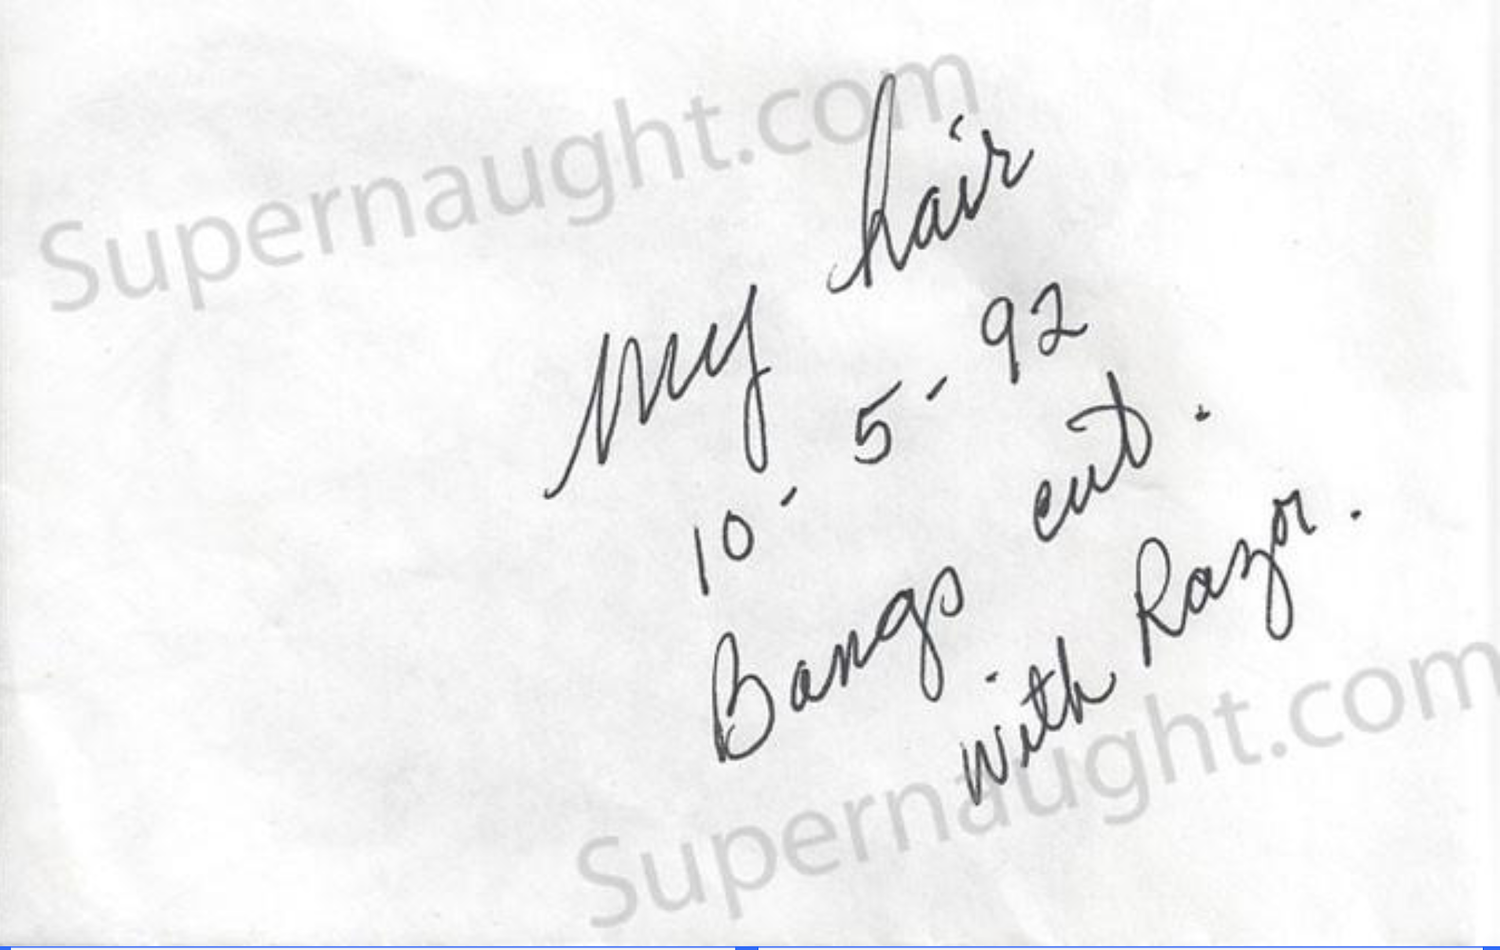 Supernaught.com
my hair
10-5-92
Bangs cut.
with Razor.
Supernaught.com